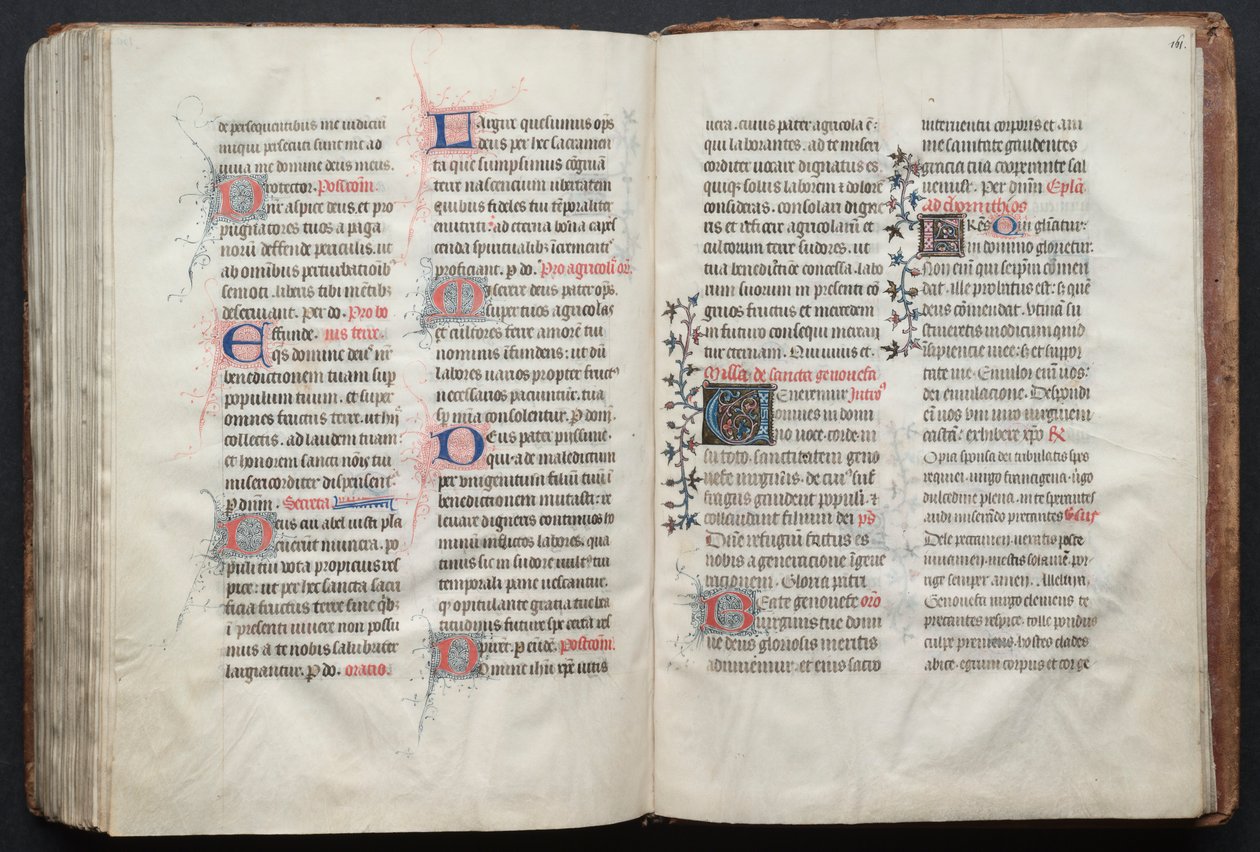 de persequentibus me iudiciū
iniqui persecuti sunt me ad
iuua me domine deus meus.
Protector. Postcōm.
Dne aspice deus. et pro
pugnatores tuos a paga
norū deffende periculis. ut
ab omnibus perturbatioib⁹
semoti. liberis tibi mētib⁊
deseruiant. Per do. Pro bo
Effunde. nis terre.
qs domine deus nr̄
benedictionem tuam sup
populum tuum. et super
omnes fructus terre. ut hij
collectis. ad laudem tuam
et honorem sancti nōis tui
misericorditer dispensent̄
P dnm̄. Secreta
Deus cui abel iusti pla
cuerūt munera. po
puli tui vota propicius res
pice. ut per hec sancta sacri
ficia fructus terre sine qb⁊
ī presenti uiuere non possu
mus a te nobis salubriter
largiantur. P do. oratio.
Largire quesumus ops̄
deus per hec sacramen
ta que sumpsimus cōgrua
terre nascencium ubertatem
quibus fideles tui tēporaliter
enutriti. ad eterna bona capes
cenda spiritualib⁊ īcrementē
proficiant. p do. Pro agricol' or.
Miserere deus pater ops.
super tuos agricolas
et cultores terre amorē tui
nominis īfundens: ut dū
labores uarios propter fruct⁹
necessarios paciuntur. tua
sp mīa consolentur. P dom.
Deus pater pijssime.
qui a de maledictum
per unigenitum filiū tuū ī
benedictionem mutasti: re
leuare digneris continuos ho
minū inflictos labores. qua
tinus sic in sudore uult⁹ tui
temporali pane uescantur.
q' opitulante gratia tue bea
titudinis future spe
P eūdē. postcōm.
Domine ihū xpē iustis
161.
uera. cuius pater agricola ē:
qui laborantes. ad te miseri
corditer uocare dignatus es
quiq⁊ solus laborem ⁊ dolorē
consideras. consolari digne
ris et reficere agricolarū et
cultorum terre sudores. ut
tua benedictiōe concessa. labo
rum suorum in presenti co
gruos fructus et mercedem
in futuro consequi merean
tur eternam. Qui uiuis et.
Missa de sancta genouefa
Generemur Intro⁹
omnes in domi
no uoce. corde. in
su toto. sanctitatem geno
uefe uirginis. de cui⁹ suf
fragijs gaudent populi. ⁊
collaudant filium dei ps̄
Dn̄e refugiū factus es
nobis a generacione ī gene
racionem. Gloria patri
Beate genouefe oro
uirginis tue domi
ne deus gloriosis meritis
adiuuemur. et eius sacro
interuentu corporis et ani
me sanitate gaudentes
gracia tua cooperante sal
uemur. Per dnm̄ Epl'a
ad chorintheos
Fr̄es Qui gl'iatur:
in domino glorietur.
Non enī qui seip̄m cōmen
dat. ille probatus est: s; quē
deus cōmendat. Vtinā su
stineretis modicum quid
īsipiencie mee: s; et suppor
tate me. Emulor enī uos:
dei emulacione. Despondi
enī uos uni uiro uirginem
castā: exhibere xp̄o R
O pia sponsa dei tribulatis spes
requiei. uirgo francigena. uīgo
dulcedine plena. in te sperantes
audi miserādo precantes Vsus
Dele peccamen. ueratis posce
iuuamen. mestis solamē. por
rige semper amen. Alleluia.
Genouefa uirgo clemens te
precantes respice. tolle pondus
culpe premens. hostes clades
abice. egrum corpus et cor ge